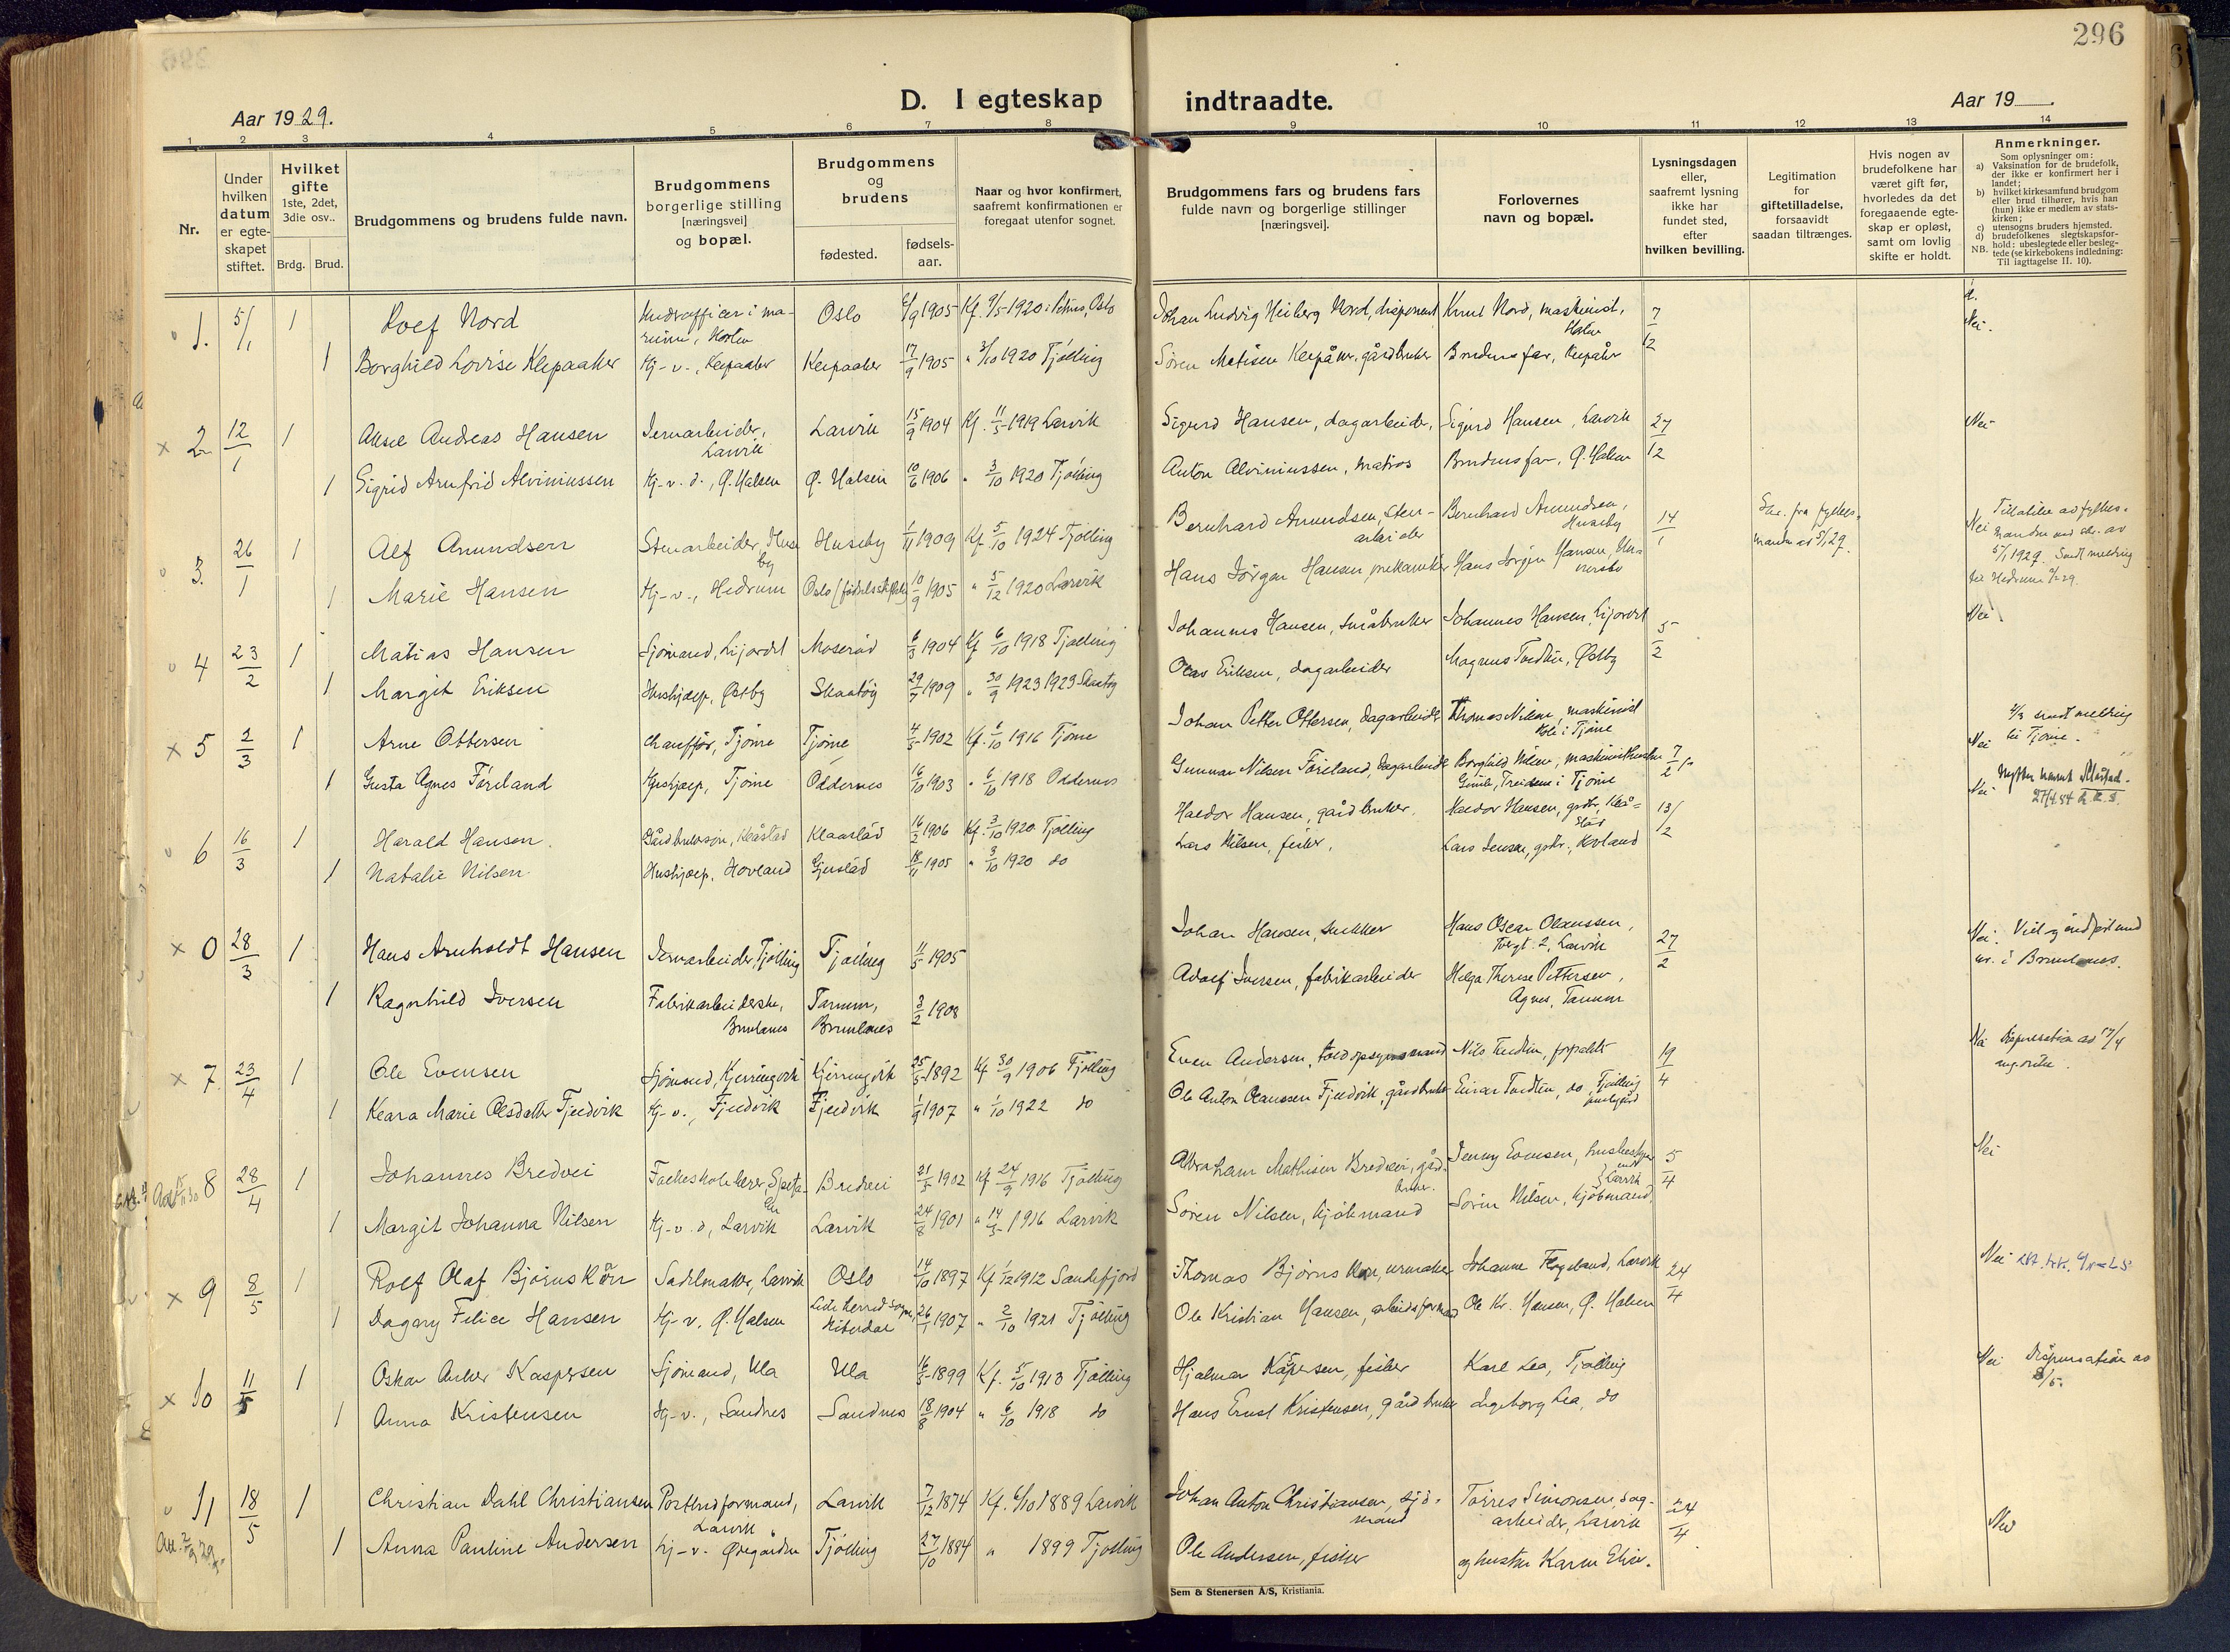 296
D. I egteskap indtraadte.
Aar 1929.
Aar 19
1 2 3 4 5 6 7 8 9 10 11 12 13 14
Nr.
Under hvilken datum er egteskapet stiftet.
Hvilket gifte 1ste, 2det, 3die osv..
Brdg. Brud.
Brudgommens og brudens fulde navn.
Brudgommens borgerlige stilling [næringsvei] og bopæl.
Brudgommens og brudens
fødested.
fødselsaar.
Naar og hvor konfirmert, saafremt konfirmationen er foregaat utenfor sognet.
Brudgommens fars og brudens fars fulde navn og borgerlige stillinger [næringsvei].
Forlovernes navn og bopæl.
Lysningsdagen eller, saafremt lysning ikke har fundet sted, efter hvilken bevilling.
Legitimation for giftetilladelse, forsaavidt saadan tiltrænges.
Hvis nogen av brudefolkene har været gift før, hvorledes da det foregaaende egteskap er opløst, samt om lovlig skifte er holdt.
Anmerkninger.
Som oplysninger om:
a) Vaksination for de brudefolk, der ikke er konfirmert her i landet;
b) hvilket kirkesamfund brudgom eller brud tilhører, hvis han (hun) ikke er medlem av statskirken;
c) utensogns bruders hjemsted.
d) brudefolkenes slegtskapsforhold: ubeslegtede eller beslegtede (se kirkebokens indledning:
NB. Til iagttagelse II. 10).
1. 5/1 1 Rolf Nord Underofficer i marinen, Horten Oslo 1905 Kf. 9/5 1920 i Petrus, Oslo Johan Ludvig Heiberg Nord, disponent Knut Nord, maskinist, Halse 7/12 d. Nei.
1 Borghild Lovise Klepaaker Hj-v., Klepaaker Klepaaker 17/9 1905 " 3/10 1920 Tjølling Søren Matisen Klepåker, gårdbruker Brudens far, Klepåker
x 2 12/1 1 Aksel Andreas Hansen Jernarbeider, Larvik Larvik 15/9 1904 Kf. 11/5 1919 Larvik Sigurd Hansen, dagarbeider, Sigurd Hansen, Larvik 27/12 Nei
1 Sigrid Arnfrid Alviniussen Hj-v. d., Ø. Halsen Ø. Halsen 10/6 1906 " 3/10 1920 Tjølling Anton Alviniussen, matros Brudens far, Ø. Halsen
3. 26/1 1 Alf Amundsen Stenarbeider, Huseby Huseby 1/11 1909 Kf. 5/10 1924 Tjølling Bernhard Amundsen, stenarbeider Bernhard Amundsen, Huseby 14/1 Skr. fra fylkesmanden av 5/1 29. Nei Tillatelse av fylkesmanden ved skr. av 5/1 1929. Sendt melding til Hedrum 29.
1 Marie Hansen Hj-v., Hedrum Oslo 10/9 1905 " 5/12 1920 Larvik Hans Jörgen Hansen, mekaniker Hans Jörgen Hansen,
4 23/2 1 Matias Hansen Sjömand, Lijordet Moseröd 6/3 1904 Kf 6/10 1918 Tjølling Johannes Hansen, småbruker Johannes Hansen, Lijordet 5/2 Nei
1 Margit Eriksen Hushjælp, Østby Skaatöy 29/7 1909 " 30/9 1923 1923 Skaatöy Olav Eriksen, dagarbeider Magnus Tvedten, Østby
x 5 2/3 1 Arne Ottersen Chauffør, Tjöme Tjöme 4/5 1902 Kf. 6/10 1916 Tjöme Johan Petter Ottersen, dagarbeider Thomas Nilsen, maskinist i Tjöme 7/2 Nei 2/3 sendt melding til Tjöme.
1 Gusta Agnes Föreland Hushjælp, Tjöme Oddernes 16/10 1903 " 6/10 1918 Oddernes Gunnar Nilsen Föreland, dagarbeider Borghild Nilsen, i Tjöme
6 16/3 1 Harald Hansen. Gårdbrukersøn, Klåstad Klaastad 16/2 1906 Kf. 3/10 1920 Tjølling Haldor Hansen, gårdbruker. Haldor Hansen, gbr. Klåstad 13/2 Nei
1 Natalie Nilsen Hushjælp, Hovland 18/11 1905 " 3/10 1920 do Lars Nilsen, fisker, Lars Jensen, gbr., Hovland
x 0 28/3 1 Hans Arnholdt Hansen Jernarbeider, Tjølling Tjølling 11/5 1905 Johan Hansen, snekker Hans Oscar Olaussen, Torgt. 2, Larvik 27/2 Nei. Viet og indført med nr. i Brunlanes.
1 Ragnhild Iversen Fabrikarbeiderske, Brunlanes Tanum, Brunlanes 3/2 1908 Adolf Iversen, fabrikarbeider Helga Therese Pettersen, Agnes, Tanum
x 7. 23/4 1 Ole Evensen Sjömand, Kjerringvik Kjerringvik 25/5 1892 Kf 30/9 1906 Tjølling Even Andersen, toldopsynsmand Nils Tvedten, forpakter 19/4 Nei Dispensation av 17/4
1 Klara Marie Olsdatter Fjeldvik Hj-v., Fjeldvik Fjeldvik 1/9 1907 " 1/10 1922 do Ole Anton Olaussen Fjeldvik, gårdbruker Einar Tvedten, do, Tjølling prestegård
8 28/4 1 Johannes Bredvei Folkeskolelærer, Bredvei 21/5 1902 Kf 24/9 1916 Tjølling Abraham Mathisen Bredvei, gårdbruker. Jenny Evensen, 5/4 Nei
1 Margit Johanna Nilsen Hj-v. d, Larvik Larvik 24/8 1901 " 14/5 1916 Larvik Søren Nilsen, kjöbmand Søren Nilsen, kjöbmand } Larvik
x 9 8/5 1 Rolf Olaf Björnskön Sadelmaker, Larvik Oslo 14/10 1897 Kf 1/12 1912 Sandefjord Thomas Björnskön, urmaker Johanne Fageland, Larvik 24/4 Nei
1 Dagny Felice Hansen Hj-v. Ø. Halsen 26/1 1907 " 2/10 1921 Tjølling Ole Kristian Hansen, arbeidsformand Ole Kr. Hansen, Ø. Halsen
x 10 11/5 1 Oskar Anker Kaspersen Sjömand, Ula Ula 16/5 1899 Kf. 5/10 1913 Tjølling Hjalmar Kaspersen, fisker Karl Lea, Tjølling Nei Dispensation av 8/5.
1 Anna Kristensen Hj-v., Sandnes Sandnes 18/8 1904 " 6/10 1918 do Hans Ernst Kristensen, gårdbruker Ingeborg Lea, do
11 18/5 1 Christian Dahl Christiansen Postbudformand, Larvik Larvik 7/12 1874 Kf. 6/10 1889 Larvik Johan Anton Christiansen, sjömand Torres Simonsen, dagarbeider, Larvik 24/4 Nei
1 Anna Pauline Andersen Hj-v. Ødegården Tjølling 27/10 1884 " 1899 Tjølling Ole Andersen, fisker og hustru Karen Elise.
Sem & Stenersen A/S, Kristiania.